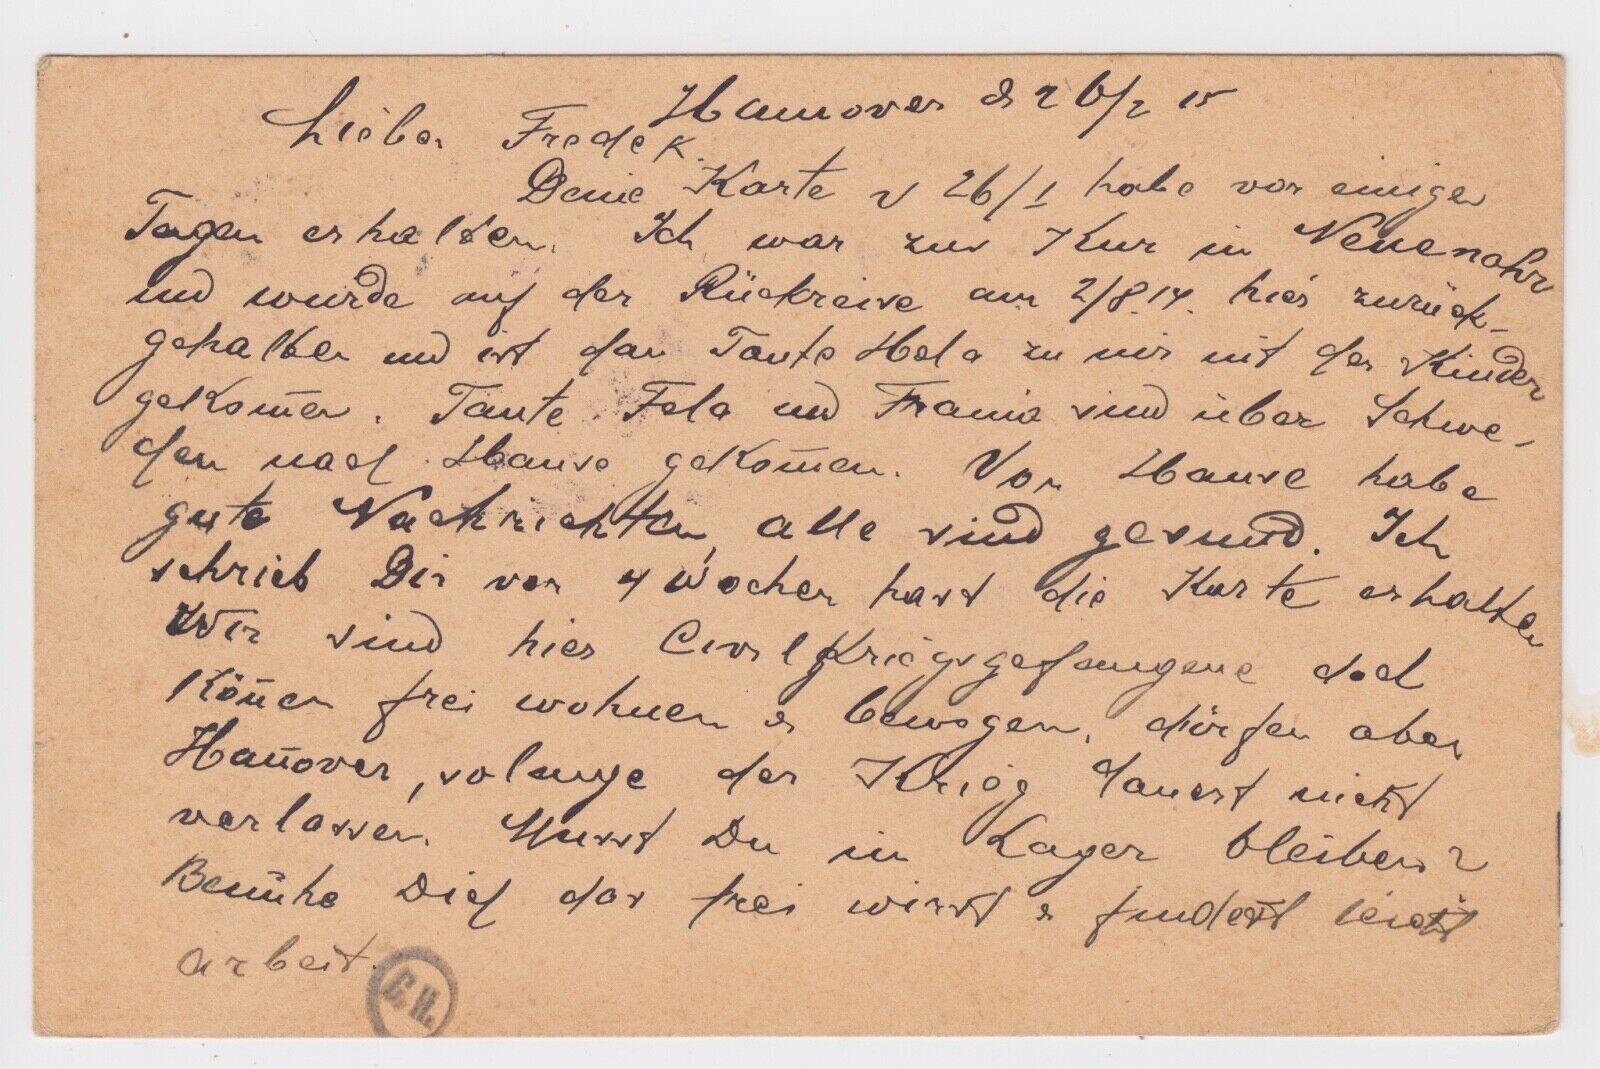 Hannover d 26/2 15
Lieber Fredek.
Deine Karte v 26/1 habe vor einigen
Tagen erhalten. Ich war zur Kur in Neuenahr
und wurde auf der Rückreise am 2/8.14. hier zurück-
gehalten und ist dan Tante Hela zu mir mit der Kinder
gekom̅en. Tante Fela und Frania sind über Schwe-
den nach Hause gekom̅en. Von Hause habe
gute Nachrichten, alle sind gesund. Ich
schrieb Dir vor 4 Wochen hast die Karte erhalten
Wir sind hier Civil Kriegsgefangene doch
kön̅en frei wohnen & bewegen, dürfen aber
Han̅over, solange der Krieg dauert nicht
verlassen. Musst Du in Lager bleiben?
Bemühe Dich das frei wirst & findest leicht
arbeit.
C.H.